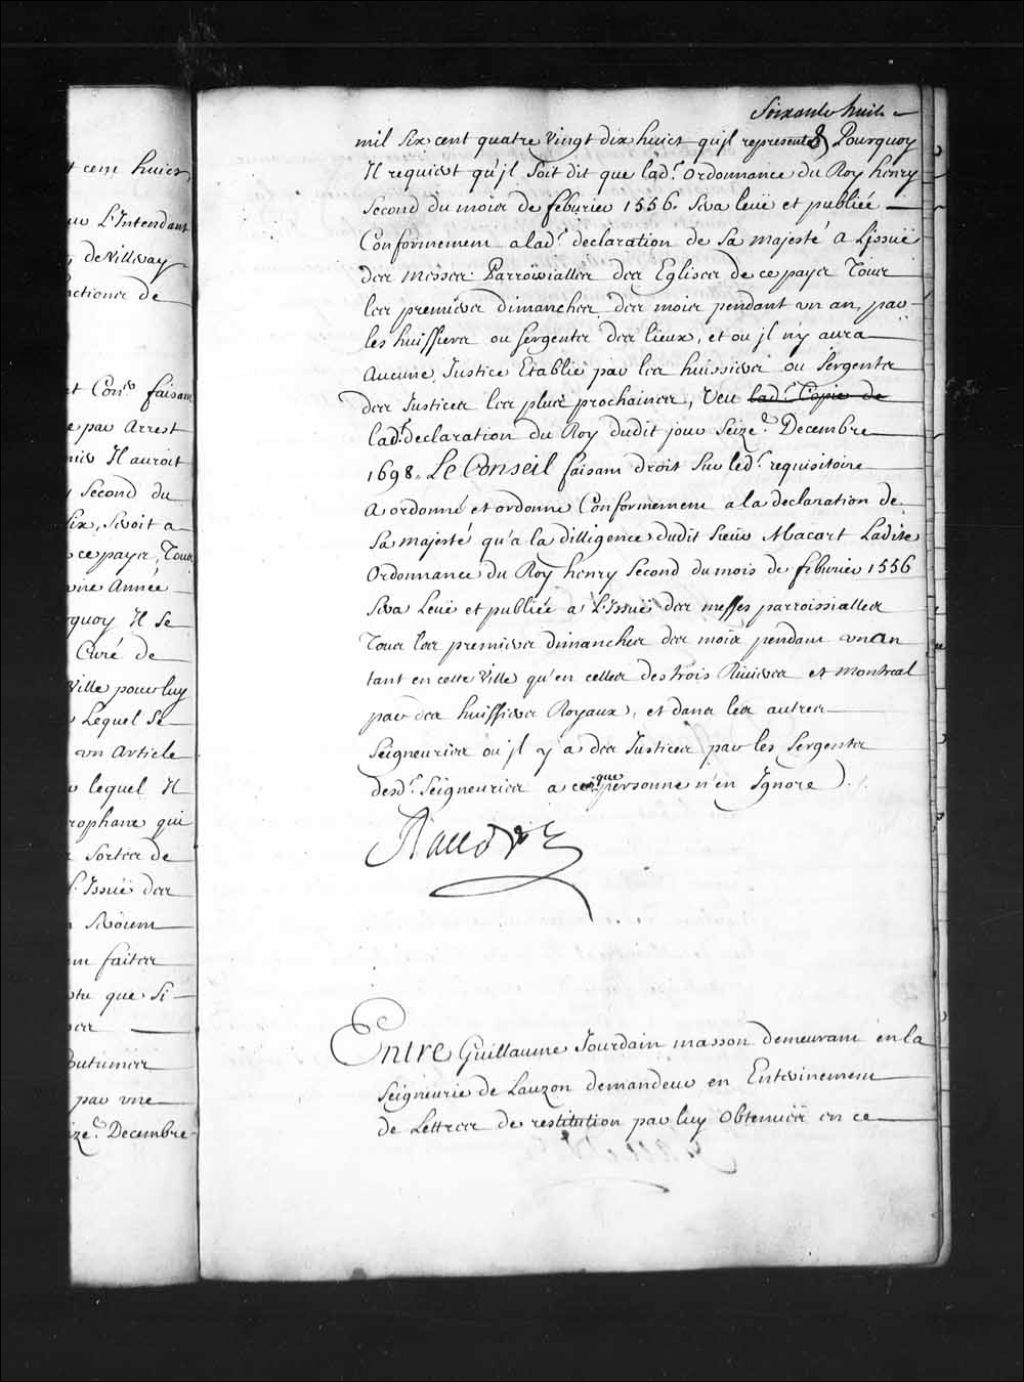 t cent huict,
L'Intendant
de Villeray
nctions de
et Conr. faisant
e par Arrest
Il auroit
Second du
six, Seroit a
ce payes, Tous
une Année
quoy Il Se
Curé de
Ville pour luy
Lequel Se
un Article
lequel Il
rophane qui
Sortes de
L'Issuë des
Seroient
faites
que Si
outumes
par une
ize.e Decembre
Soixante huit
mil Six cent quatre Vingt dix huict qu'jl represente Pourquoy
Il requiert qu'jl Soit dit que lad.e ordonnance du Roy henry
Second du mois de feburier 1556. Sera leüe et publiée
Conformement a lad.e declaration de Sa majesté a Lissuë
des messes Parroissialles des Eglises de ce payes Tous
les premiers dimanches des mois pendant un an, par
les huissiers ou Sergents des lieux, et ou jl n'y aura
Aucune Justice Etablie par les huissiers ou Sergents
des Justices les plus prochaines, Veu lad.e Copie de
lad.e declaration du Roy dudit jour Seize.e Decembre
1698. Le Conseil faisant droit Sur led.t requisitoire
A ordonné et ordonne Conformement a la declaration de
Sa majesté qu'a la dilligence dudit Sieur Macart Ladite
Ordonnance du Roy henry Second du mois de feburier 1556
Sera Leüe et publiée a L'Issuë des messes parroissialles
Tous les premiers dimanches des mois pendant un an
tant en cette Ville qu'en celles des trois Riuieres et Montreal
par des huissiers Royaux, et dans les autres
Seigneuries ou jl y a des Justices par les Sergents
desd.es Seigneuries a ce que personne n'en Ignore
Raudot
Entre Guillaume Jourdain masson demeurant en la
Seigneurie de Lauzon demandeur en Enterinement
de Lettres de restitution par luy Obtenües en ce